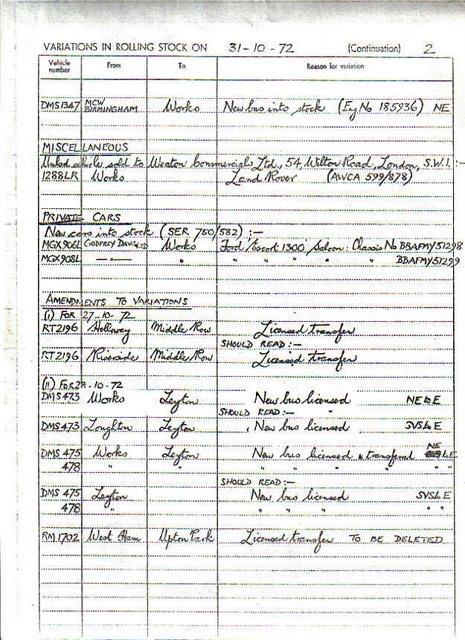 VARIATIONS IN ROLLING STOCK ON 31-10-72 (Continuation) 2
Vehicle number From To Reason for variation
DMS1347 MCW BIRMINGHAM Works New bus into stock (Eng No 185936) NE
MISCELLANEOUS
vehicle sold to Weaton Commercials Ltd, 54, Wilton Road, London, S.W.1. :-
1288LR Works Land Rover (AWCA 599/878)
PRIVATE CARS
New cars into stock (SER 750/582) :-
MGX906L GODFREY DAVIS LTD Works Ford Escort 1300 Saloon: Chassis No BBAFMY51298
MGX908L —"— " " " " " BBAFMY51299
AMENDMENTS TO VARIATIONS
(i) FOR 27-10-72
RT2196 Holloway Middle Row Licensed transfer
SHOULD READ :-
RT2196 Riverside Middle Row Licensed transfer
(ii) FOR 28-10-72
DMS473 Works Leyton New bus licensed NE&E
SHOULD READ :-
DMS473 Loughton Leyton New bus licensed SVS&E
DMS 475 Works Leyton New bus licensed & transferred NE &E
478 " " " " " "
SHOULD READ :-
DMS 475 Leyton New bus licensed SVS&E
478 " " " " " "
RM1702 West Ham Upton Park Licensed transfer TO BE DELETED